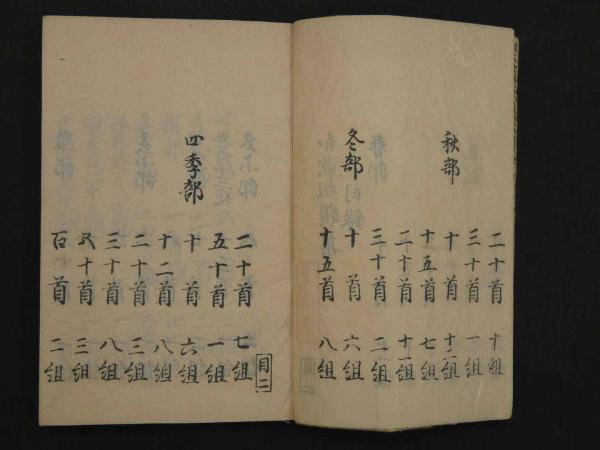 二十首 十組
三十首 一組
秋部 十首 十二組
十五首 七組
二十首 十一組
三十首 二組
冬部 十首 六組
十五首 八組
二十首 七組
五十首 一組
四季部 十首 六組
十二首 八組
二十首 三組
三十首 八組
五十首 三組
百首 二組
目二